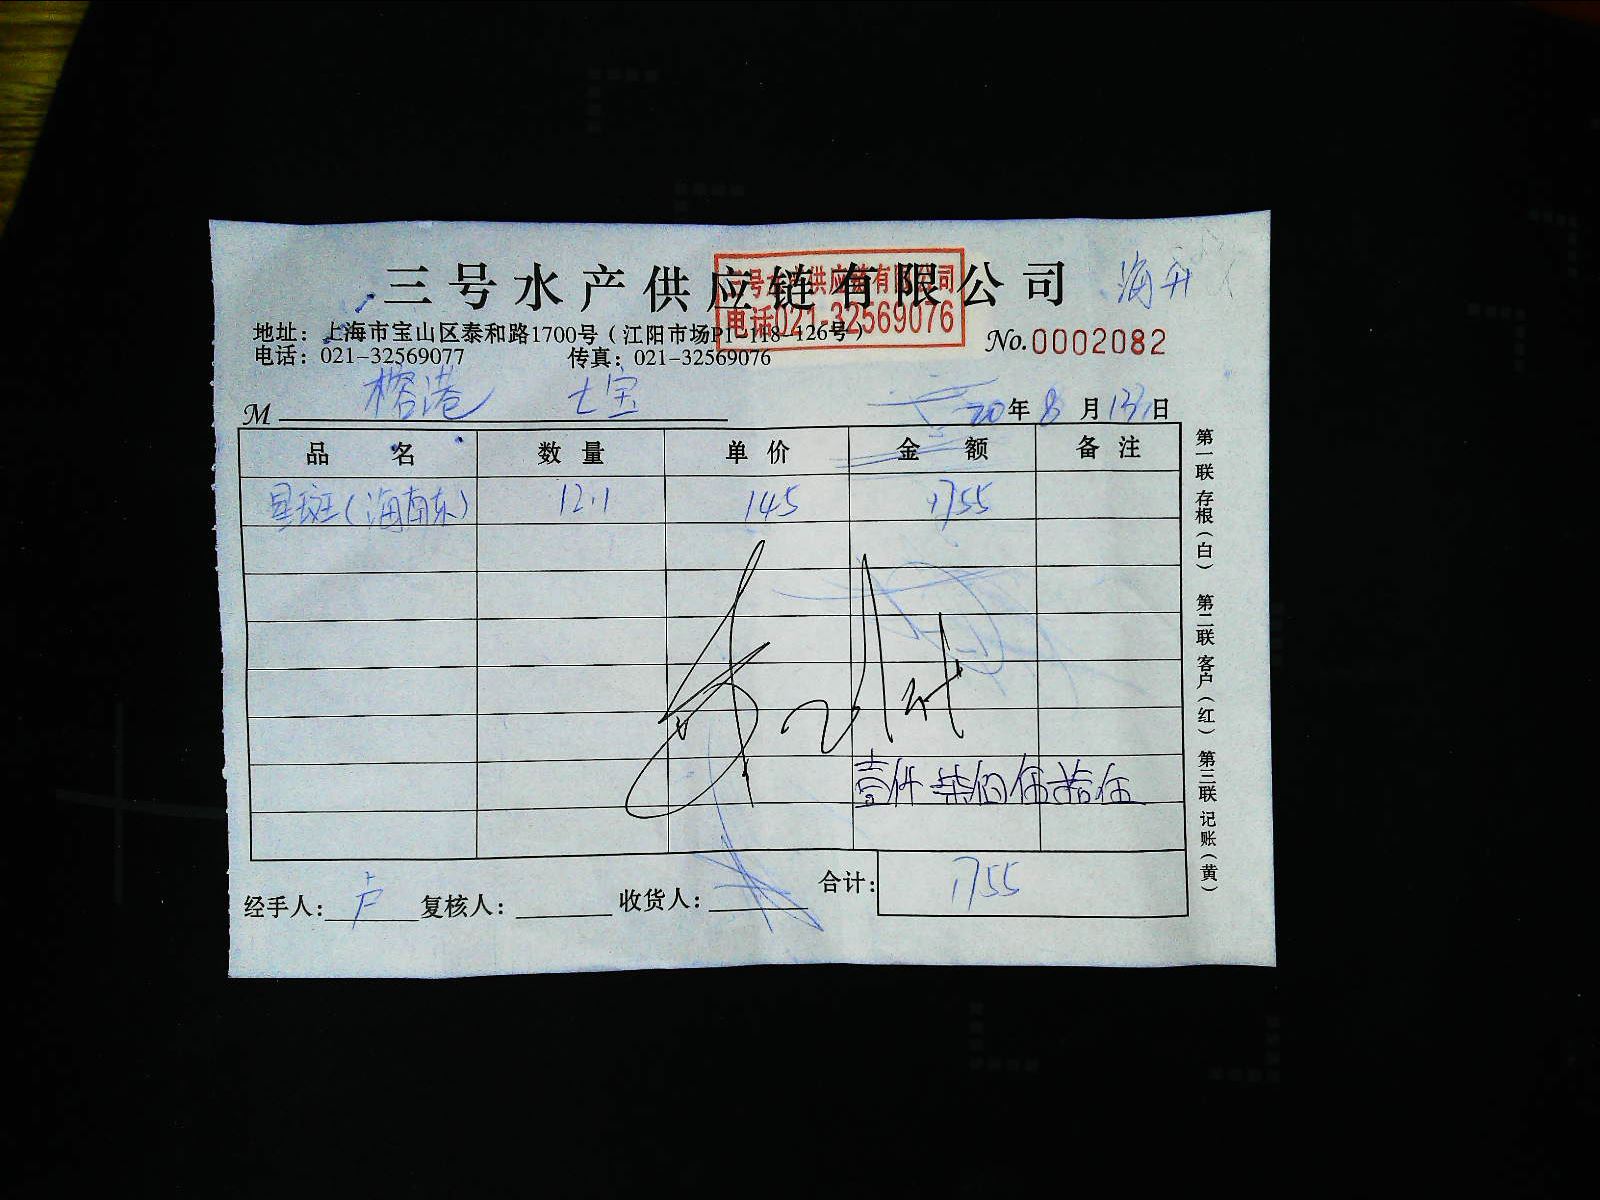 三号水产供应链有限公司 海升
三号水产供应链有限公司
电话021-32569076
地址：上海市宝山区泰和路1700号（江阳市场P1-118-126号）
电话：021-32569077 传真：021-32569076
No.0002082
M 榕港 七宝 20年 8月 13日
品名 数量 单价 金额 备注
星斑（海南东） 12.1 145 1755
壹仟柒佰伍拾伍
合计： 1755
经手人：卢 复核人： 收货人：
第一联 存根（白） 第二联 客户（红） 第三联 记账（黄）